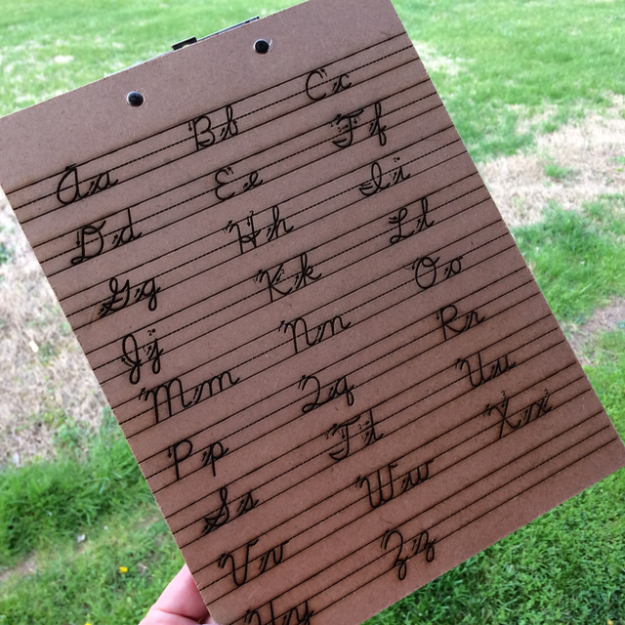 Aa Bb Cc
Dd Ee Ff
Gg Hh Ii
Jj Kk Ll
Mm Nn Oo
Pp Qq Rr
Ss Tt Uu
Vv Ww Xx
Yy Zz